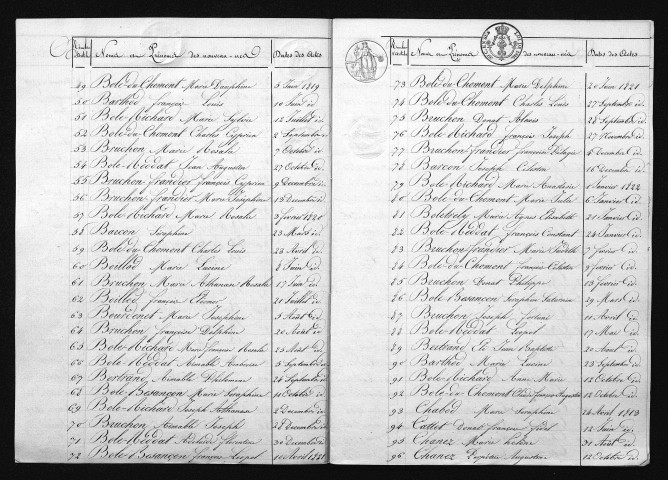 Noms et Prénoms des nouveau-nés Dates des Actes
49 Bole-du-Chomont Marie Dauphine 5 Juin 1819
50 Barthod françois Louis 10 Juin id.
51 Bole-Richard Marie Sylvie 12 Juillet id.
52 Bole-du-Chomont Charles Cyprien 2 Septembre id.
53 Bruchon Marie Rosalie 9 Octobre id.
54 Bole-Feddot Jean Augustin 27 Octobre id.
55 Bruchon-frandrier françois Cyprien 9 Decembre id.
56 Bruchon frandrier Marie Josephine 13 Decembre id.
57 Bole-Richard Marie Rosalie 3 fevrier 1820
58 Barçon Josephine 23 Avril id.
59 Bole-du-Chomont Charles Louis 23 Avril id.
60 Boillod Marie Lucine 8 Juin id.
61 Bruchon Marie Athanase Rosalie 17 Juin id.
62 Boillod françois 21 Juillet id.
63 Bourdenet Marie Josephine 5 Aout id.
64 Bruchon françoise Delphine 20 Aout id.
65 Bole-Richard Marie françoise Rosalie 25 Aout id.
66 Bole-Feddot Aimable 5 Septembre id.
67 Bertrand Aimable Philomene 24 Septembre id.
68 Bole-Besançon Marie Seraphine 11 Octobre id.
69 Bole-Richard Joseph Athanase 2 Decembre id.
70 Bruchon Aimable Joseph 28 Decembre id.
71 Bole-Feddot 30 Decembre id.
72 Bole-Besançon françois Leopol 10 Avril 1821
Noms et Prénoms des nouveau-nés Dates des Actes
73 Bole-du-Chomont Marie Delphine 20 Juin 1821
74 Bole-du-Chomont Charles Louis 27 Septembre id.
75 Bruchon Donat Aloïs 28 Septembre id.
76 Bole Richard françois Joseph 27 Novembre id.
77 Bruchon frandrier françoise 6 Decembre id.
78 Barçon Joseph Celestin 16 Decembre id.
79 Bole-Richard Marie Anastasie 1 Janvier 1822
80 Bole-du-Chomont Marie Julie 6 Janvier id.
81 Marie Agnes Elisabeth 21 Janvier id.
82 Bole-Feddot François Constant 24 Janvier id.
83 Bruchon-frandrier Marie 7 fevrier id.
84 Bole-du-Chomont françois Celestin 9 fevrier id.
85 Bruchon Donat Philippe 13 fevrier id.
86 Bole Besançon Seraphin 29 Mars id.
87 Bruchon Joseph 11 Avril id.
88 Bole-Feddot Leopol 17 Mai id.
89 Bertrand Jean Baptiste 20 Aout id.
90 Barthod Marie Lucine 23 Septembre id.
91 Bole-Richard Anne Marie 12 Octobre id.
92 Bole-du-Chomont françois Augustin 12 Octobre id.
93 Chabod Marie Seraphine 24 Avril 1823
94 Cattet Donat françois fidel 12 Juin id.
95 Chanez Marie 31 Aout id.
96 Chanez Augustine 12 Octobre id.